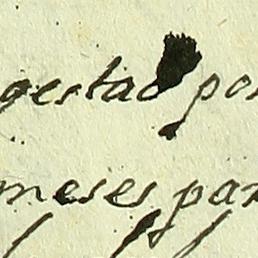 gestaõ por
meses par